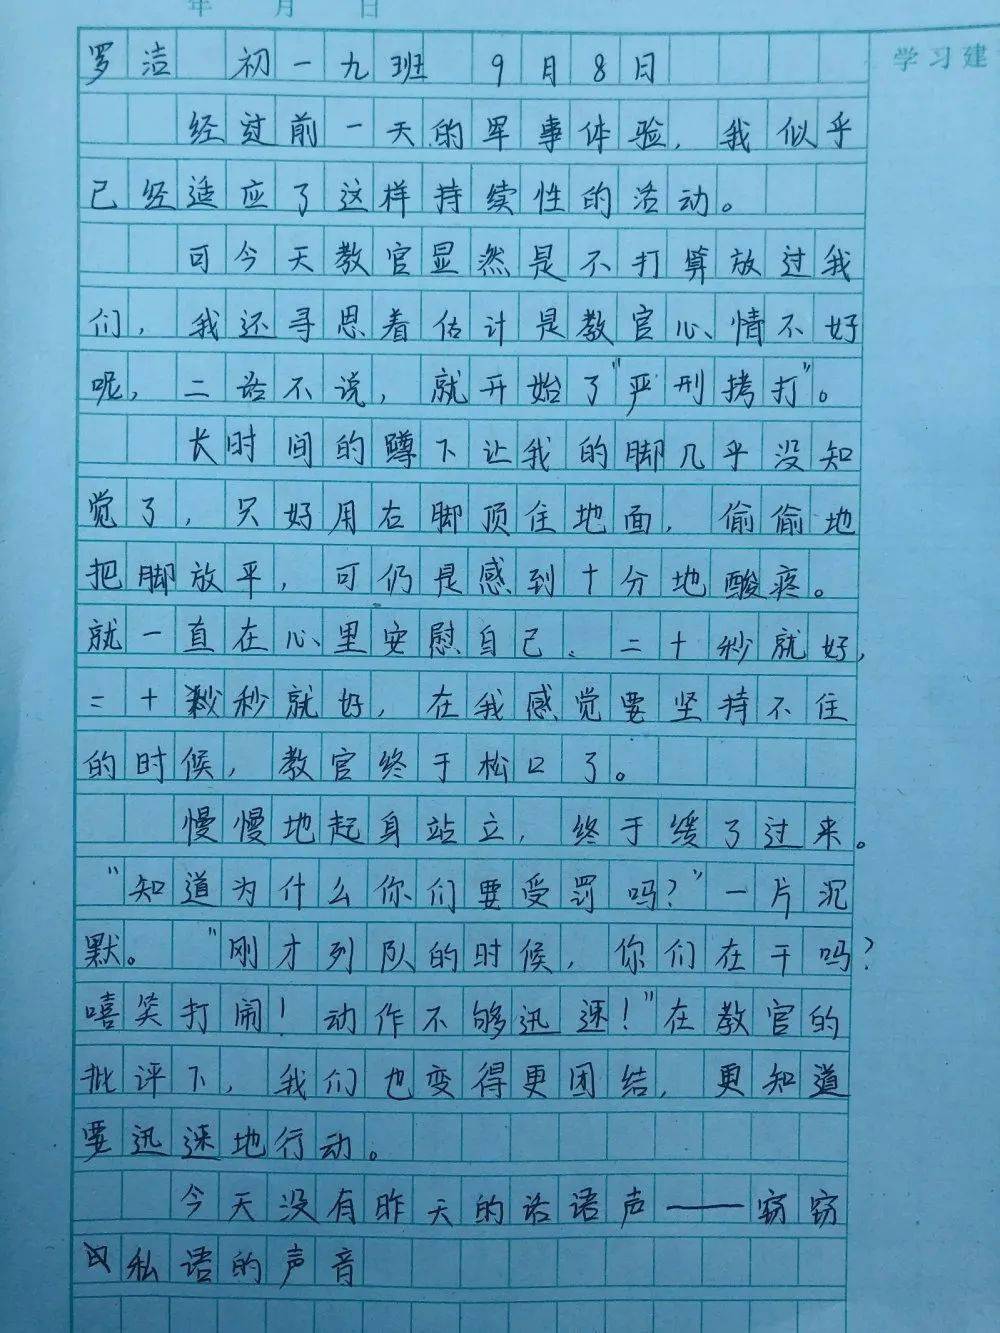 年 月 日
学习建
罗洁 初一九班 9月8日
经过前一天的军事体验，我似乎
已经适应了这样持续性的活动。
可今天教官显然是不打算放过我
们，我还寻思着估计是教官心情不好
呢，二话不说，就开始了"严刑拷打"。
长时间的蹲下让我的脚几乎没知
觉了，只好用右脚顶住地面，偷偷地
把脚放平，可仍是感到十分地酸疼。
就一直在心里安慰自己、二十秒就好，
二十秒就好，在我感觉要坚持不住
的时候，教官终于松口了。
慢慢地起身站立，终于缓了过来。
"知道为什么你们要受罚吗？"一片沉
默。"刚才列队的时候，你们在干吗？
嘻笑打闹！动作不够迅速！"在教官的
批评下，我们也变得更团结，更知道
要迅速地行动。
今天没有昨天的话语声——窃窃
私语的声音